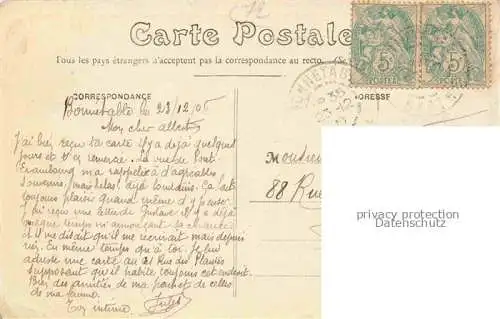 12
Carte Postale
Tous les pays étrangers n'acceptent pas la correspondance au recto. (Se
CORRESPONDANCE
ADRESSE
5
5
Bonnetable le 23/12/05
Mon cher Albert
J'ai bien reçu ta carte il y a déjà quelques
jours et t'en remercie. La vue de Pont
m'a rappelé d'agréables
souvenirs, mais hélas déjà lointains. Ça fait
toujours plaisir quand même d'y penser
J'ai reçu une lettre de Gustave il y a déjà
quelque temps
il me disait qu'il m'écrirait mais depuis
rien. En même temps qu'à toi, je lui
adresse une carte au 21 Rue des Plantes
supposant qu'il habite toujours cet endroit.
Bien des amitiés de ma part et de celles
de ma femme.
Ton intime Jules
Monsieur
88 Rue
privacy protection
Datenschutz